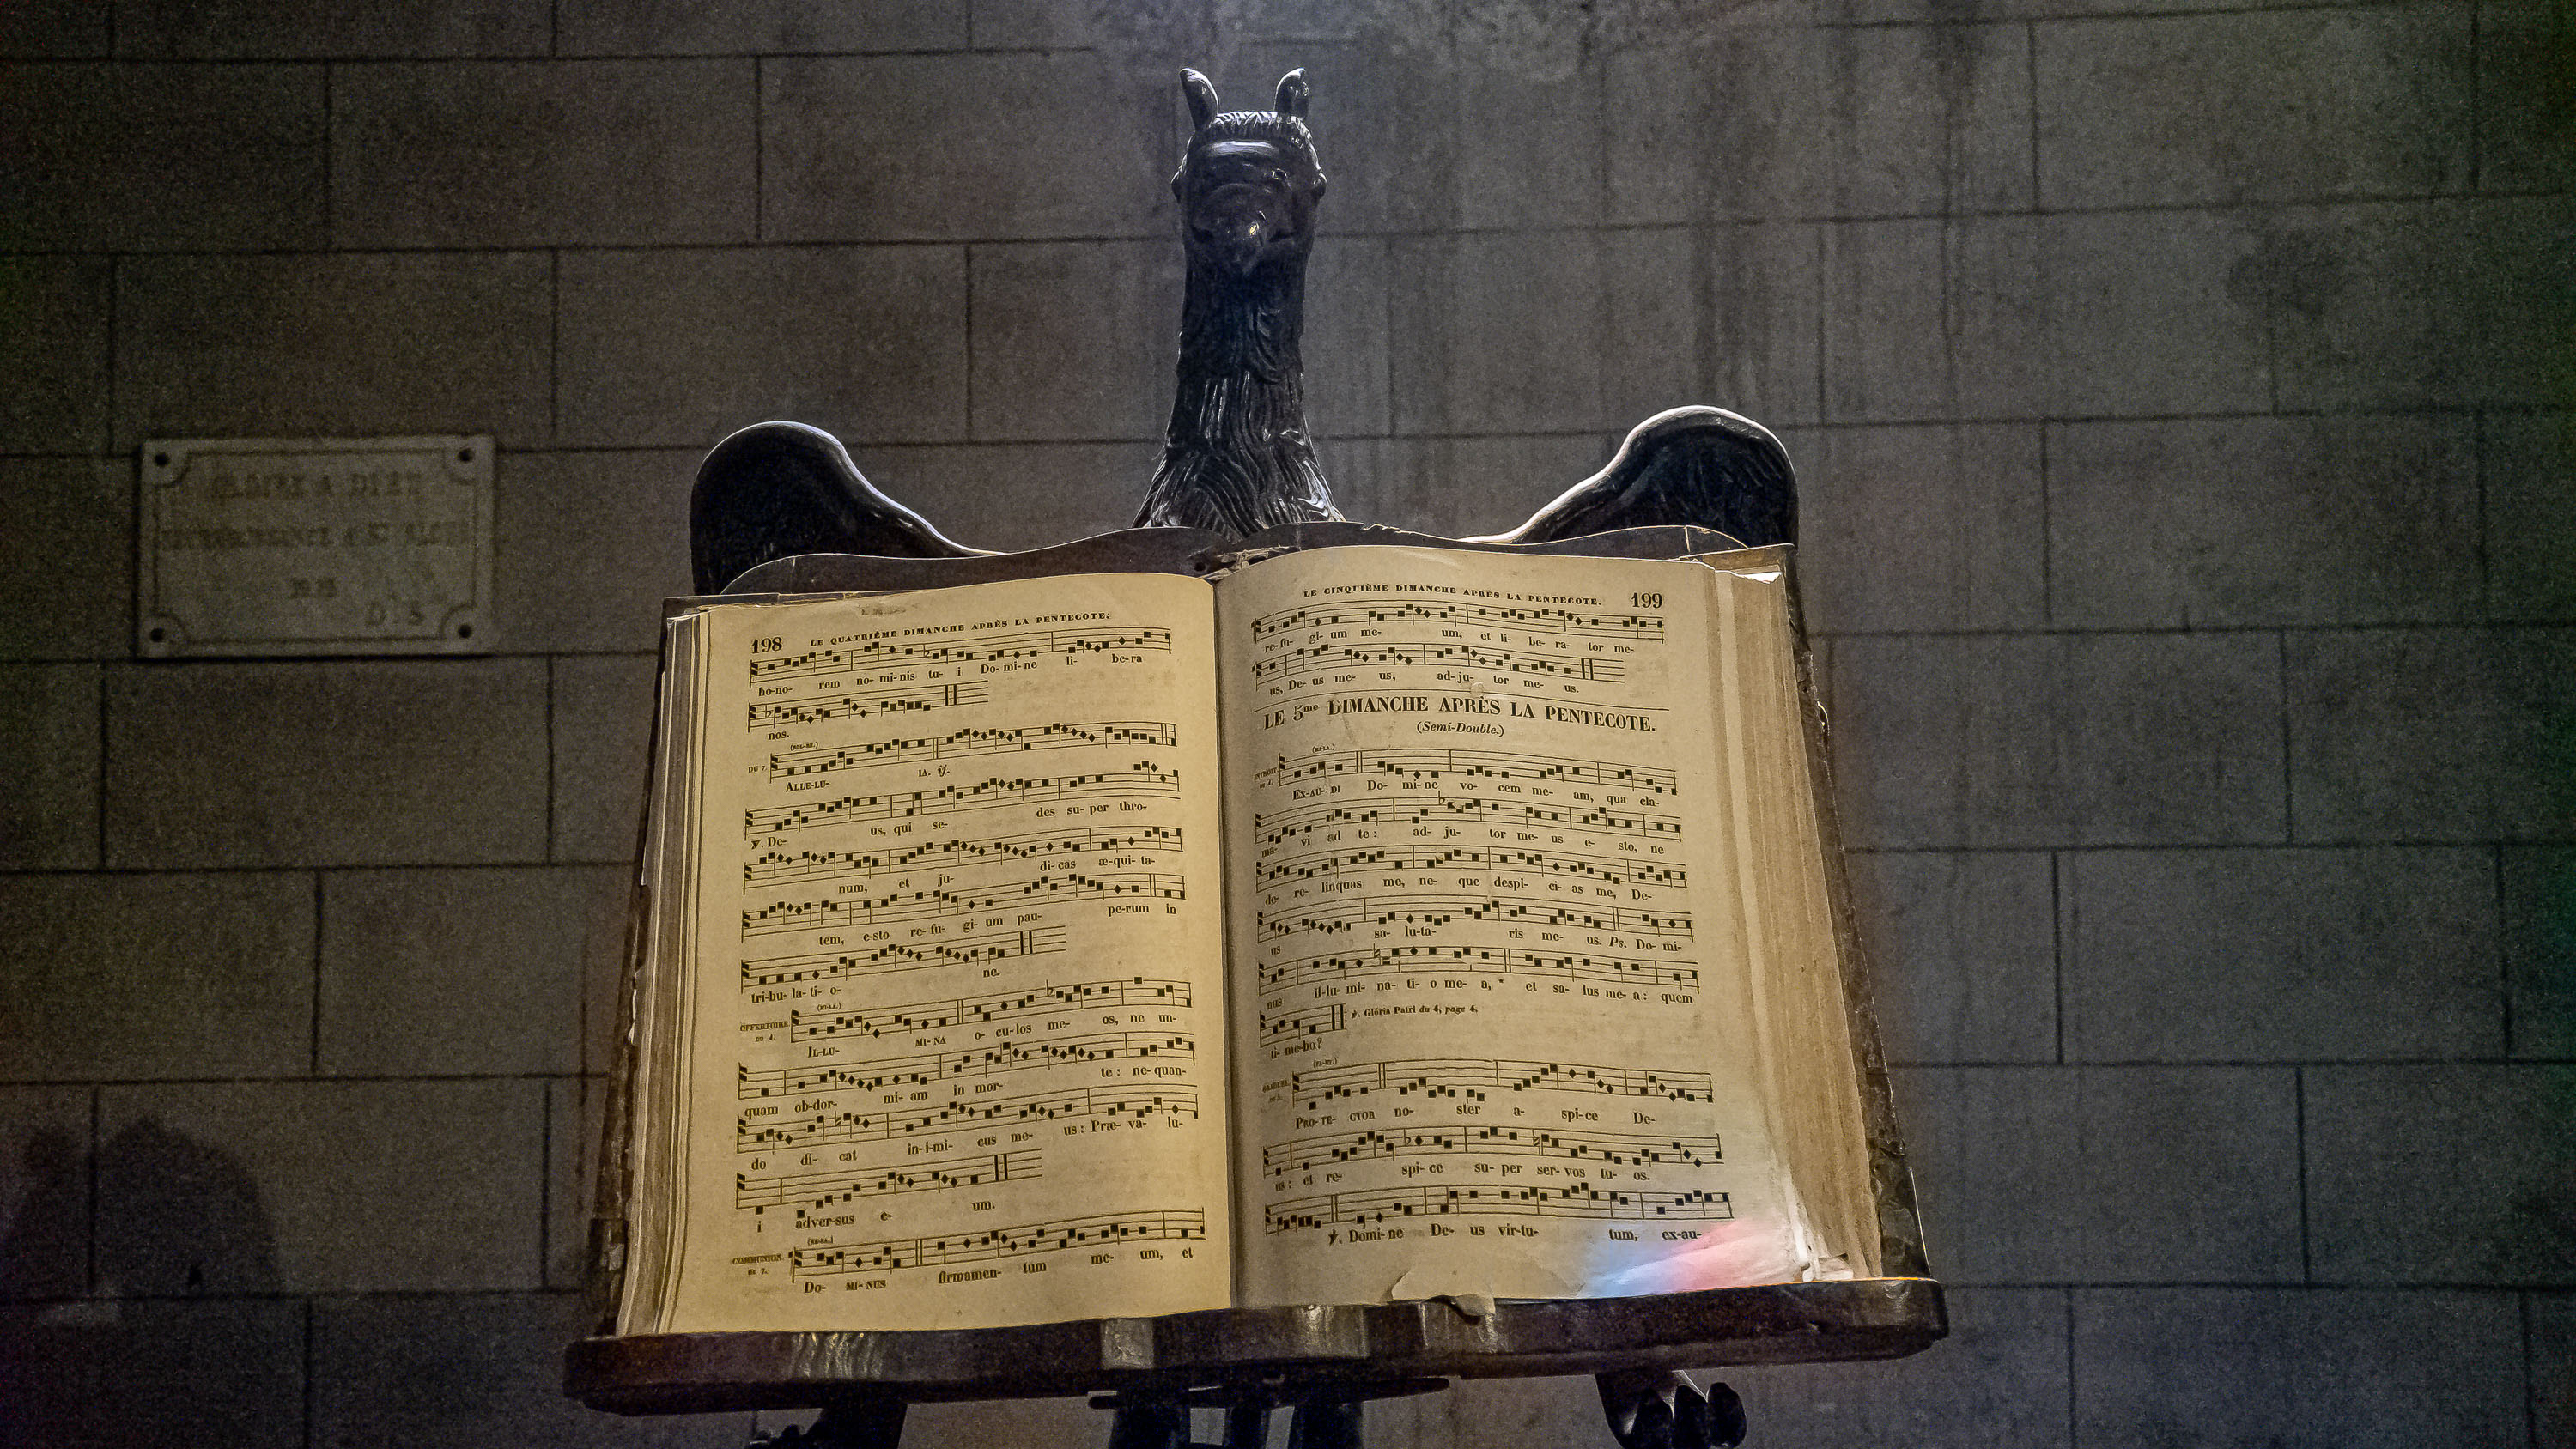 GLOIRE A DIEU
D. S
198 LE QUATRIÈME DIMANCHE APRÈS LA PENTECOTE.
ho-no- rem no-mi-nis tu- i Do-mi-ne li- be-ra
nos.
DU 7.
ALLE-LU- IA. ij.
℣. De- us, qui se- des su-per thro-
num, et ju- di-cas æ-qui-ta-
tem, e-sto re-fu- gi-um pau- pe-rum in
tri-bu-la-ti-o- ne.
OFFERTOIRE
DU 4.
(MI-LA.)
IL-LU- MI-NA o-cu-los me- os, ne un-
quam ob-dor- mi-am in mor- te: ne-quan-
do di- cat in-i-mi- cus me- us: Præ-va- lu-
i adver-sus e- um.
COMMUNION.
DU 2.
(RE-FA.)
DO- MI-NUS firmamen- tum me- um, et
LE CINQUIÈME DIMANCHE APRÈS LA PENTECOTE. 199
re-fu- gi-um me- um, et li- be- ra- tor me-
us, De-us me- us, ad-ju- tor me- us.
LE 5me DIMANCHE APRÈS LA PENTECOTE.
(Semi-Double.)
INTROIT
(MI-LA.)
EX-AU-DI Do- mi-ne vo- cem me- am, qua cla-
ma- vi ad te: ad- ju- tor me- us e- sto, ne
de- re- linquas me, ne- que despi- ci- as me, De-
us sa- lu-ta- ris me- us. Ps. Do- mi-
nus il-lu- mi- na- ti- o me- a, * et sa- lus me- a: quem
ti- me-bo? ℣. Glória Patri du 4, page 4.
GRADUEL
PRO-TE- CTOR no- ster a- spi-ce De-
us: et re- spi-ce su- per ser-vos tu- os.
℣. Domi-ne De- us vir-tu- tum, ex-au-